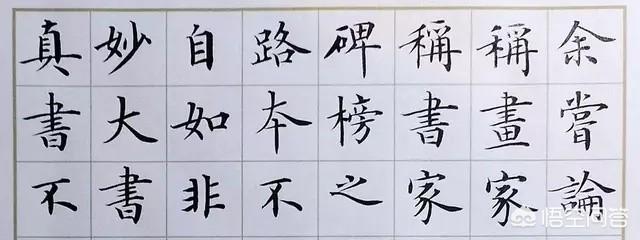 余嘗論
稱畫家
稱書家
碑榜之
路本不
自如非
妙大書
真書不
悟空问答